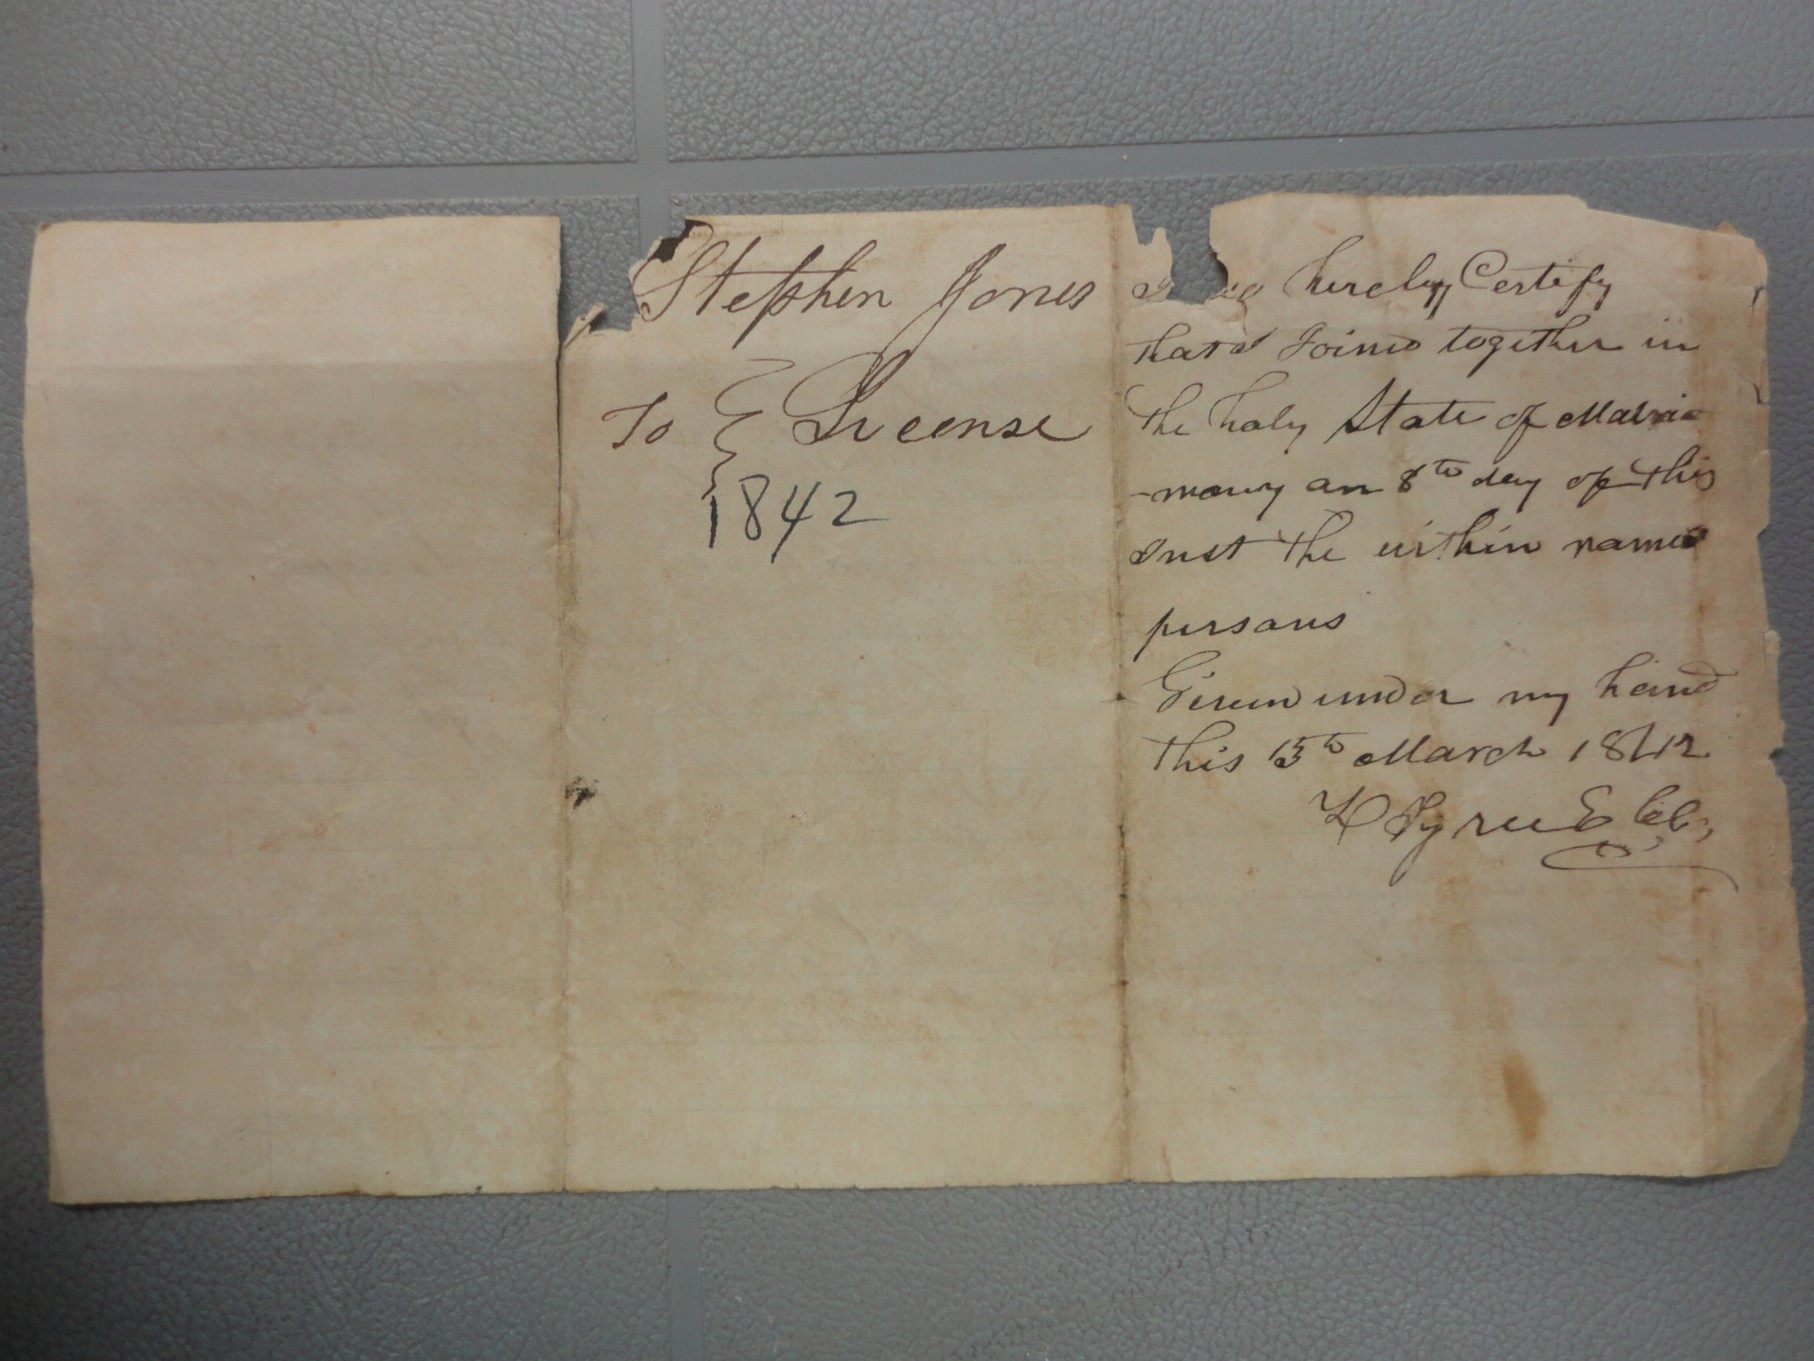 Stephen Jones
To } License
1842
I do hereby Certify
that I Joined together in
the holy State of Matri
-mony on 8th day of this
Inst the within named
persons
Given under my hand
this 15th March 1842
Tyree